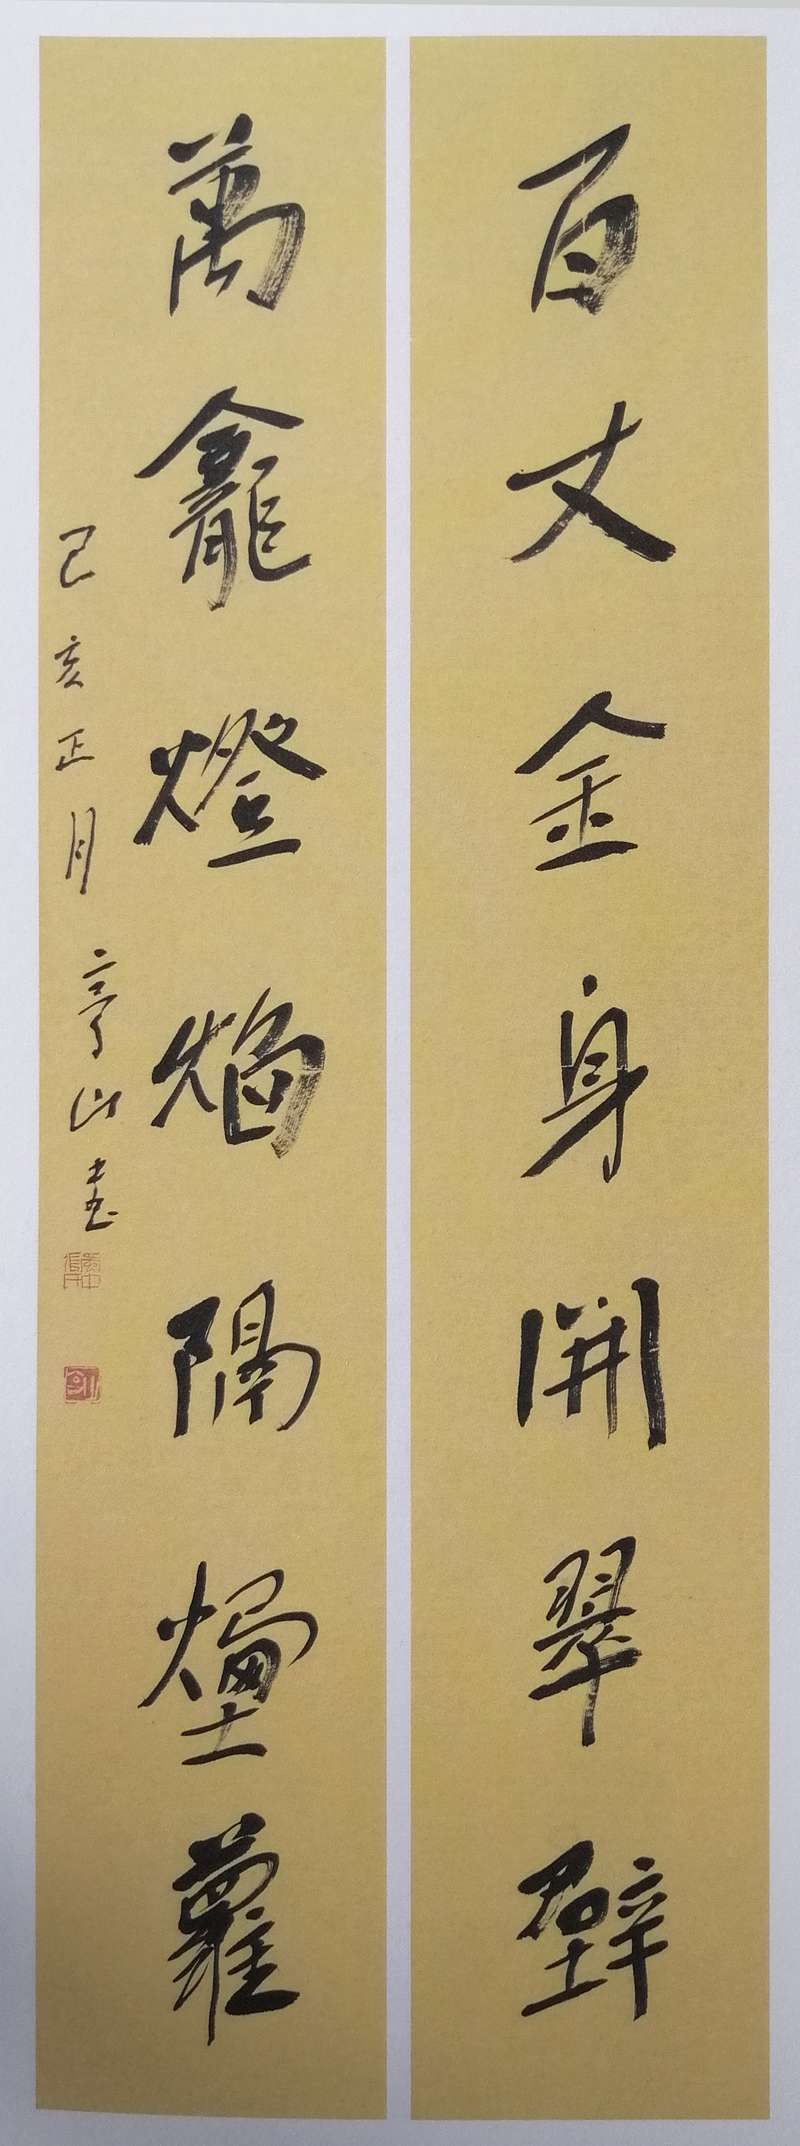 百丈金身開翠壁
萬龕燈焰隔煙蘿
己亥正月山書